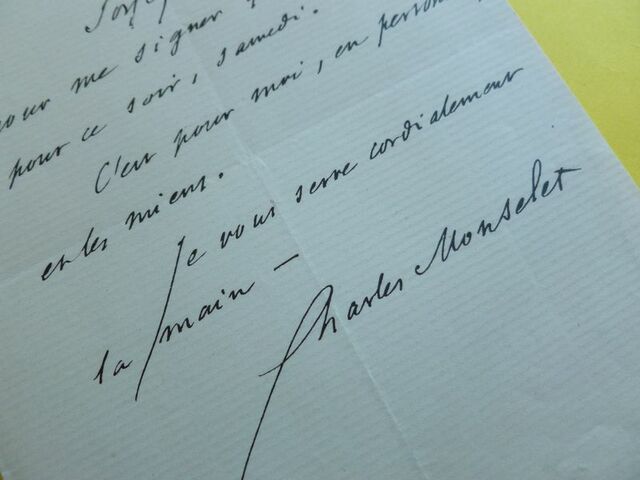 pour me signer
pour ce soir, samedi.
C'est pour moi, en personne,
et les miens.
Je vous serre cordialement
la main —
Charles Monselet